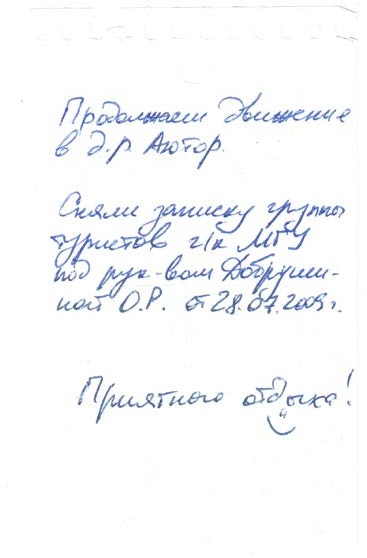 Продолжаем движение
в д.р. Аютор.
Сняли записку группы
туристов г/к МГУ
под рук-вом Добруши-
ной О.Р. от 28.07.2009г.
Приятного отдыха!